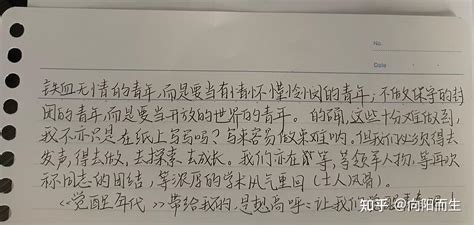 No
Date
铁血无情的青年,而是要当有情怀懂怜悯的青年;不做保守的封
闭的青年,而是要当开放的世界的青年。的确,这些十分难做到,
我不亦只是在纸上写写吗?写来容易做来难呐。但我们必须得去
发声,得去做,去探索,去成长。我们亦在等,等领军人物,等再次
称同志的团结,等浓厚的学术风气重回(士人风骨)。
《觉醒年代》带给我的,是想高呼:让我们
知乎 @向阳而生